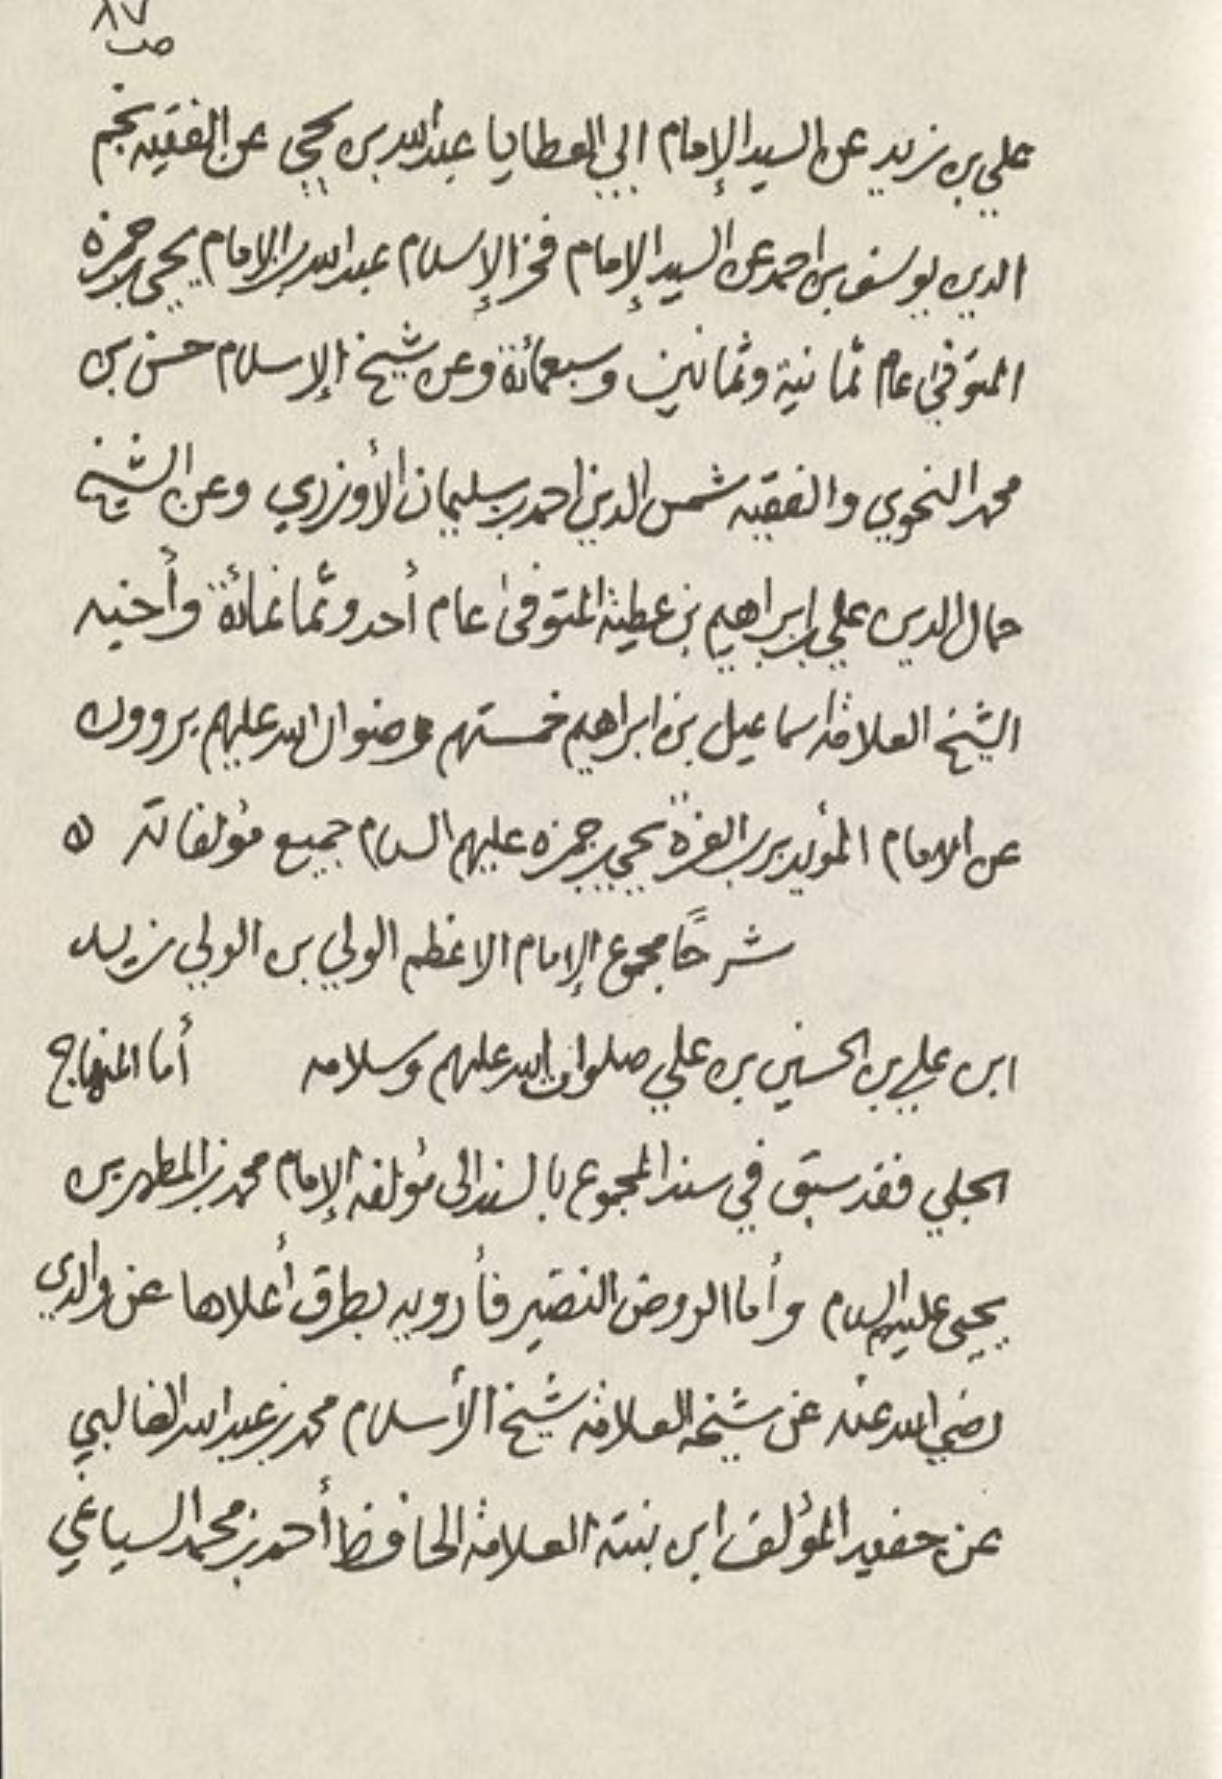 ٨٧
ص
علي بن زيد عن السيد الإمام ابي العطايا عبدالله بن يحيى عن الفقيه نجم
الدين يوسف بن احمد عن السيد الإمام فخر الإسلام عبدالله بن الإمام يحيى بن حمزة
المتوفى عام ثمانية وثمانين وسبعمائة وعن شيخ الإسلام حسن بن
محمد النحوي والفقيه شمس الدين احمد بن سليمان الأوزري وعن الشيخ
جمال الدين علي بن ابراهيم بن عطية المتوفى عام أحد وثمانمائة وأخيه
الشيخ العلامة اسماعيل بن ابراهيم خمستهم رضوان الله عليهم يروون
عن الإمام المؤيد برب العزة يحيى بن حمزة عليهم السلام جميع مؤلفاته ٥
شرحًا مجموع الإمام الاعظم الولي بن الولي زيد
ابن علي بن الحسين بن علي صلوات الله عليهم وسلامه أما المنهاج
الجلي فقد سبق في سند المجموع بالسند الى مؤلفه الإمام محمد بن المطهر بن
يحيى عليهم السلام وأما الروض النضير فأرويه بطرق أعلاها عن والدي
رضي الله عنه عن شيخه العلامة شيخ الأسلام محمد بن عبدالله الغالبي
عن حفيد المؤلف ابن بنته العلامة الحافظ أحمد بن محمد السياغي